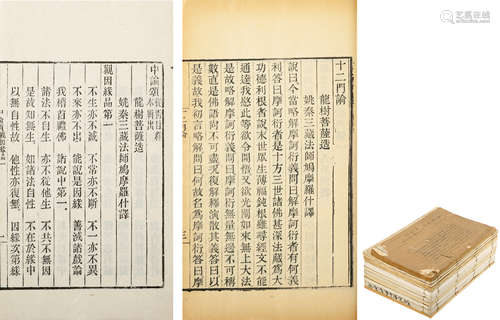 中論頌
龍樹菩薩造
姚秦三藏法師鳩摩羅什譯
觀因緣品第一
不生亦不滅 不常亦不斷 不一亦不異
不來亦不出 能說是因緣 善滅諸戲論
我稽首禮佛 諸說中第一
諸法不自生 亦不從他生 不共不無因
是故知無生 如諸法自性 不在於緣中
以無自性故 他性亦復無 因緣次第緣
十二門論
龍樹菩薩造
姚秦三藏法師鳩摩羅什譯
說曰今當略解摩訶衍義問曰解摩訶衍者有何義
利答曰摩訶衍者是十方三世諸佛甚深法藏為大
功德利根者說末世眾生薄福鈍根雖尋經文不能
通達我愍此等欲令開悟又欲光闡如來無上大法
是故略解摩訶衍義問曰摩訶衍無量無邊不可稱
數直是佛語尚不可盡況復解釋演散其義答曰以
是義故我初言略解問曰何故名為摩訶衍答曰摩